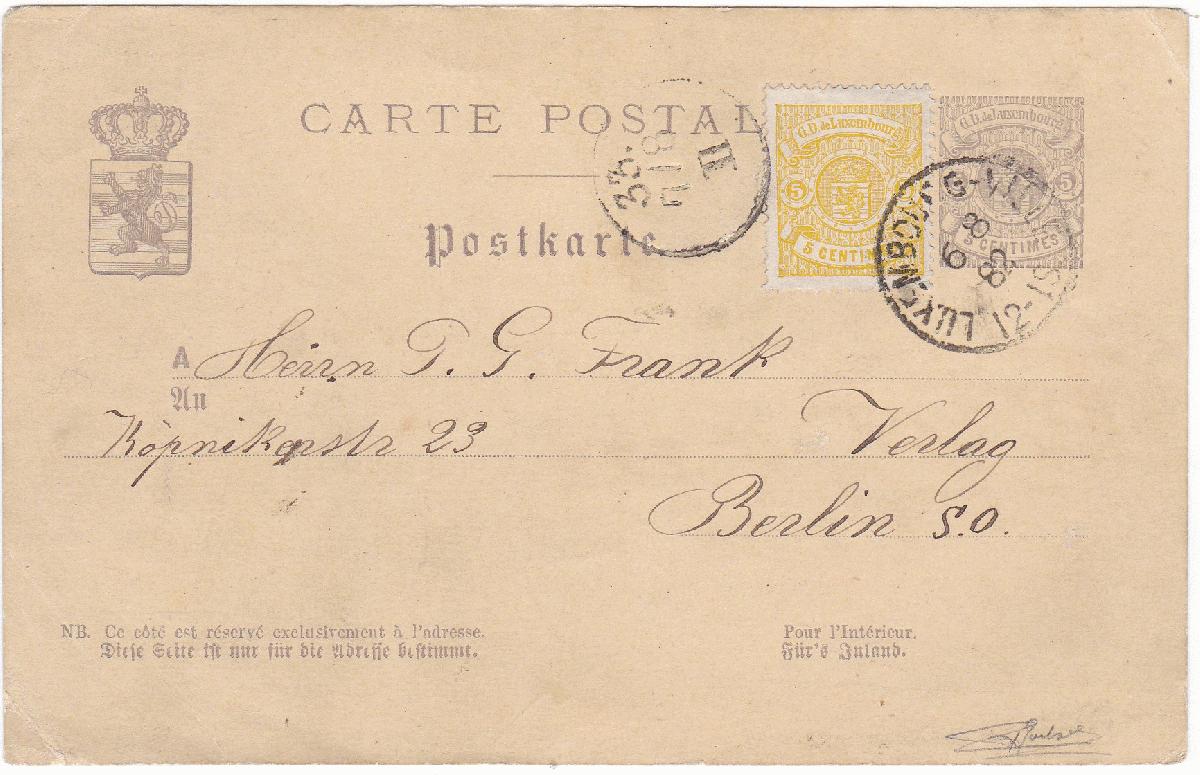 CARTE POSTAL
Postkarte
G.D. de Luxembourg
5
5 CENTIM
G.D. de Luxembourg
5
5 CENTIMES
LUXEMBOURG-VILLE
8 6 88
12-1S
33.
8|6
II
A Herrn T. G. Frank
An
Köpnikerstr 23 Verlag
Berlin S.O.
NB. Ce côté est réservé exclusivement à l'adresse.
Diese Seite ist nur für die Adresse bestimmt.
Pour l'Intérieur.
Für's Inland.